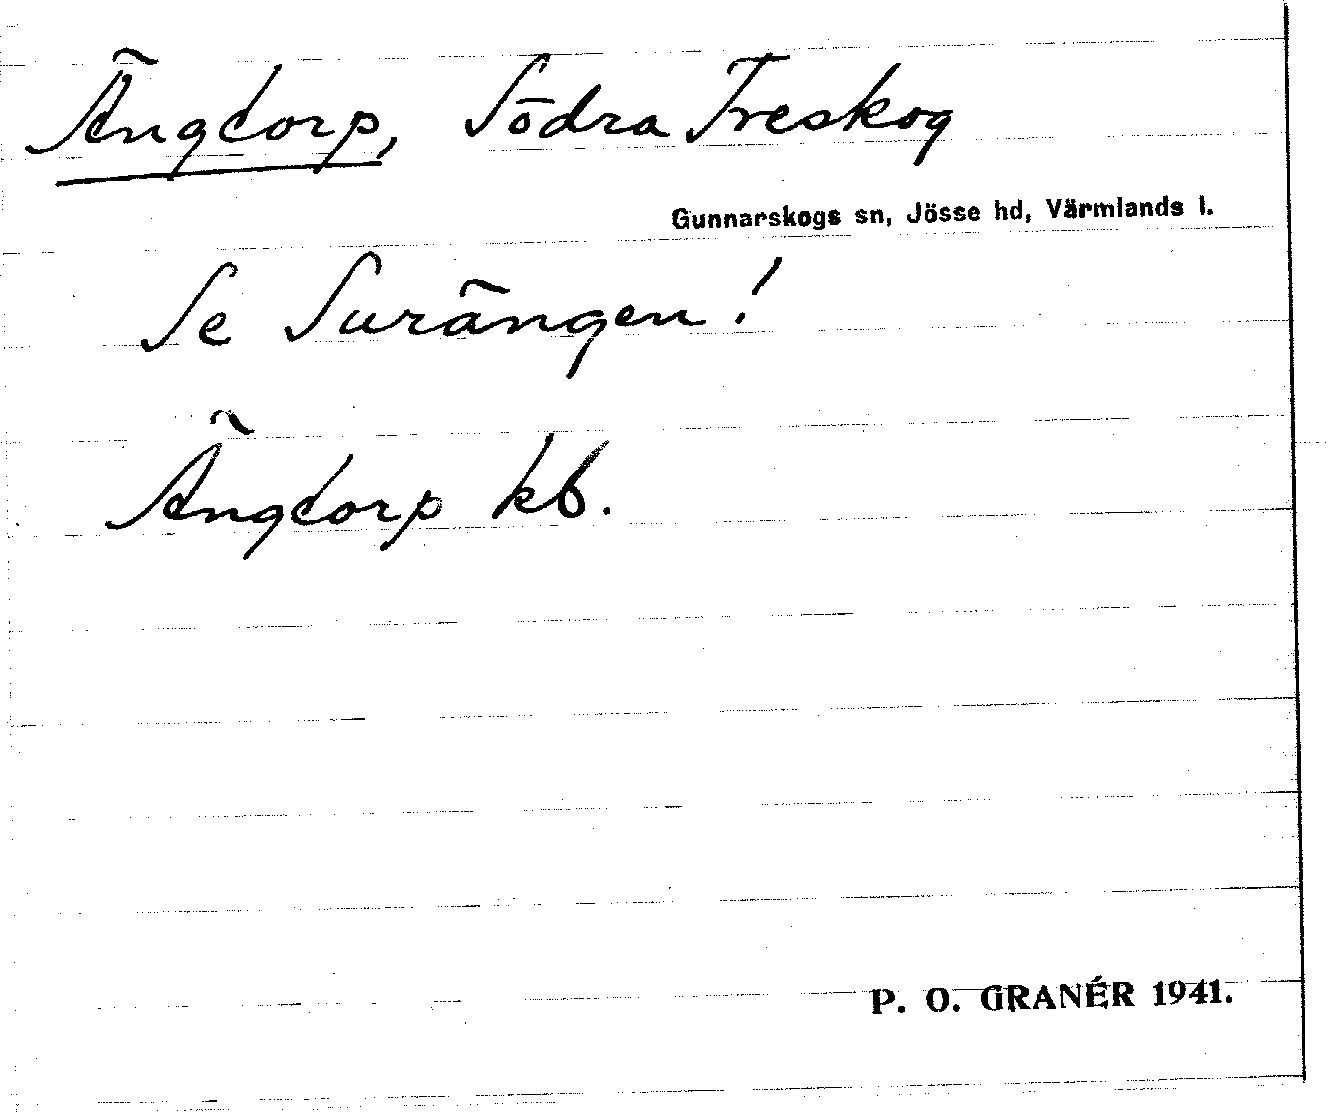 Ängtorp, Södra Treskog
Gunnarskogs sn, Jösse hd, Värmlands l.
Se Surängen!
Ängtorp kb.
P. O. GRANÉR 1941.